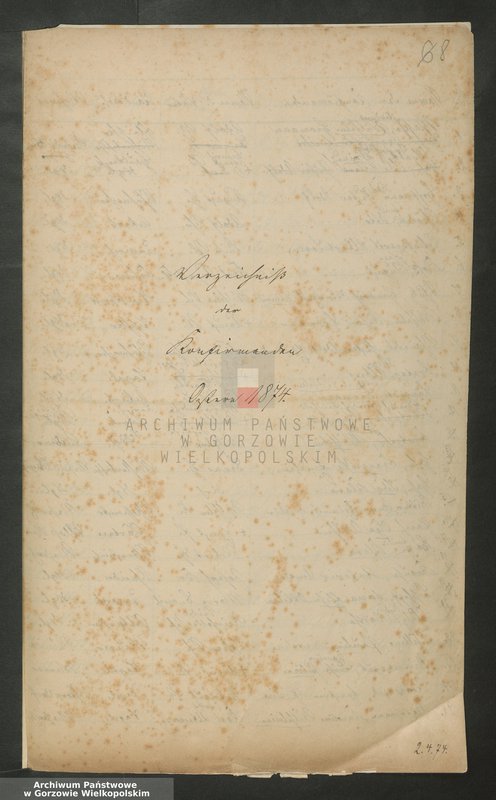 68
Verzeichniß
der
Konfirmanden
Ostern 1874.
ARCHIWUM PAŃSTWOWE
W GORZOWIE
WIELKOPOLSKIM
2.4.74.
Archiwum Państwowe
w Gorzowie Wielkopolskim